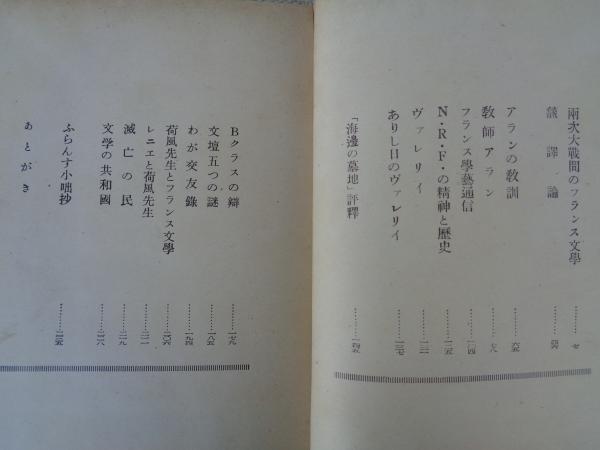 兩次大戰間のフランス文學………七
飜譯論………四六
アランの敎訓………六五
敎師アラン………七八
フランス學藝通信………一〇四
N・R・F・の精神と歷史………一一五
ヴァレリイ………一二一
ありし日のヴァレリイ………一三七
「海邊の墓地」評釋………一四五
Bクラスの辯………一七九
文壇五つの謎………一八五
わが交友錄………一九四
荷風先生とフランス文學………二〇六
レニエと荷風先生………二一一
滅亡の民………二一九
文学の共和國………二二六
ふらんす小咄抄………二三五
あとがき